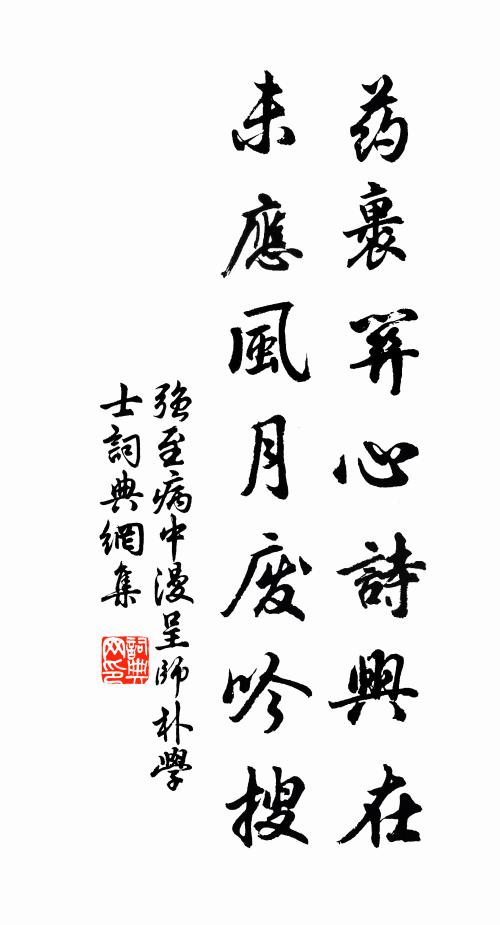 药裹关心詩興在
未應風月废吟搜
強至病中漫呈師朴學
士詞典網集
詞典网印